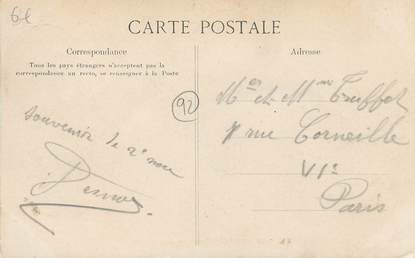 6e
CARTE POSTALE
Correspondance
Tous les pays étrangers n'acceptent pas la
correspondance au recto, se renseigner à la Poste
Adresse
92
Souvenir le 2e
Mr et Mme Truffot
7 rue Corneille
VIe
Paris